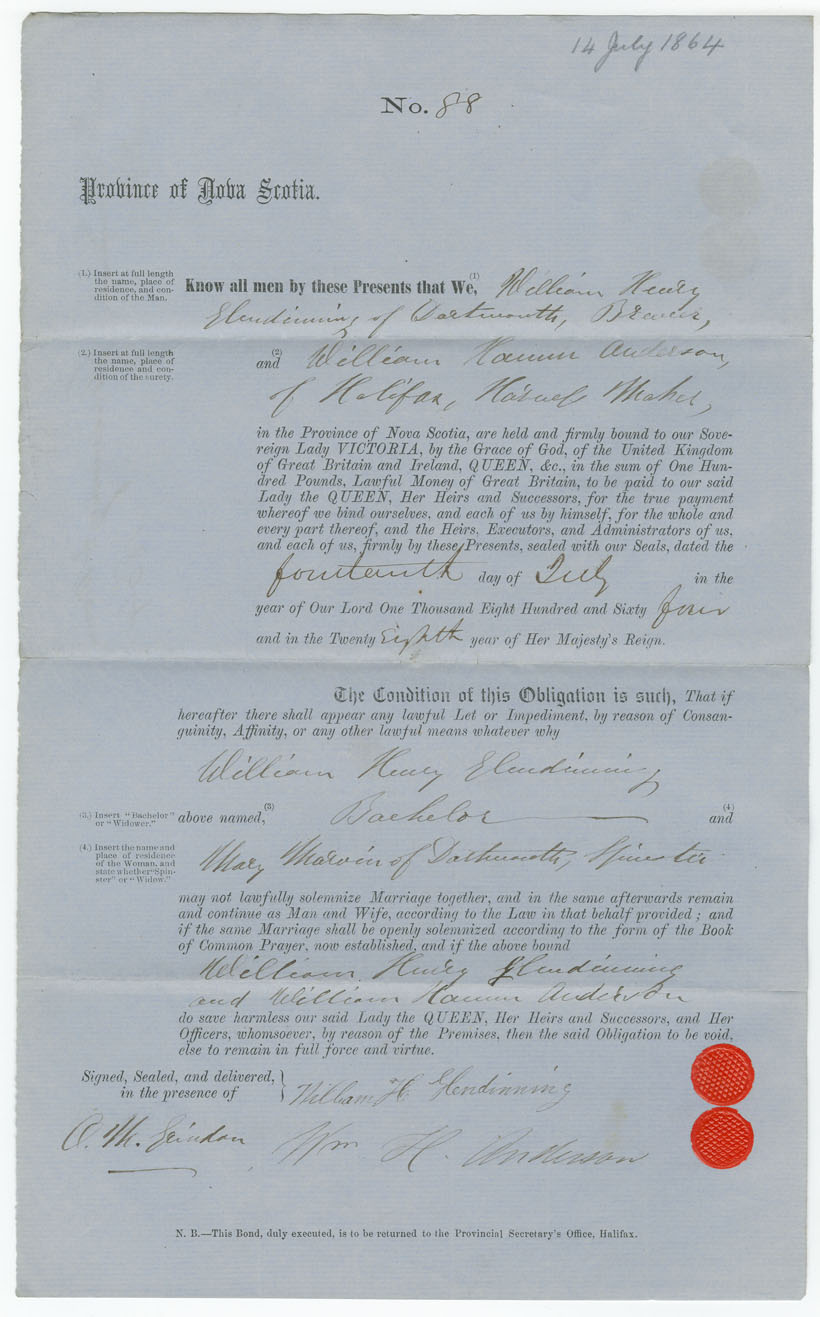 14 July 1864
No. 88
Province of Nova Scotia.
(1.) Insert at full length
the name, place of
residence, and con-
dition of the Man.
Know all men by these Presents that We,(1) William Henry
Glendinning of Dartmouth, Brewer,
(2.) Insert at full length
the name, place of
residence and con-
dition of the surety.
and (2) William Hamm Anderson,
of Halifax, Harness Maker,
in the Province of Nova Scotia, are held and firmly bound to our Sove-
reign Lady VICTORIA, by the Grace of God, of the United Kingdom
of Great Britain and Ireland, QUEEN, &c., in the sum of One Hun-
dred Pounds, Lawful Money of Great Britain, to be paid to our said
Lady the QUEEN, Her Heirs and Successors, for the true payment
whereof we bind ourselves, and each of us by himself, for the whole and
every part thereof, and the Heirs, Executors, and Administrators of us,
and each of us, firmly by these Presents, sealed with our Seals, dated the
fourteenth day of July in the
year of Our Lord One Thousand Eight Hundred and Sixty four
and in the Twenty Eighth year of Her Majesty's Reign.
The Condition of this Obligation is such, That if
hereafter there shall appear any lawful Let or Impediment, by reason of Consan-
guinity, Affinity, or any other lawful means whatever why
William Henry Glendinning
(3.) Insert "Bachelor"
or "Widower."
above named,(3) Bachelor — (4) and
(4.) Insert the name and
place of residence
of the Woman, and
state whether "Spin-
ster" or "Widow."
Mary Marvin of Dartmouth, Spinster
may not lawfully solemnize Marriage together, and in the same afterwards remain
and continue as Man and Wife, according to the Law in that behalf provided; and
if the same Marriage shall be openly solemnized according to the form of the Book
of Common Prayer, now established, and if the above bound
William Henry Glendinning
and William Hamm Anderson
do save harmless our said Lady the QUEEN, Her Heirs and Successors, and Her
Officers, whomsoever, by reason of the Premises, then the said Obligation to be void,
else to remain in full force and virtue.
Signed, Sealed, and delivered,
in the presence of
William H Glendinning
Wm H. Anderson
N. B.—This Bond, duly executed, is to be returned to the Provincial Secretary's Office, Halifax.